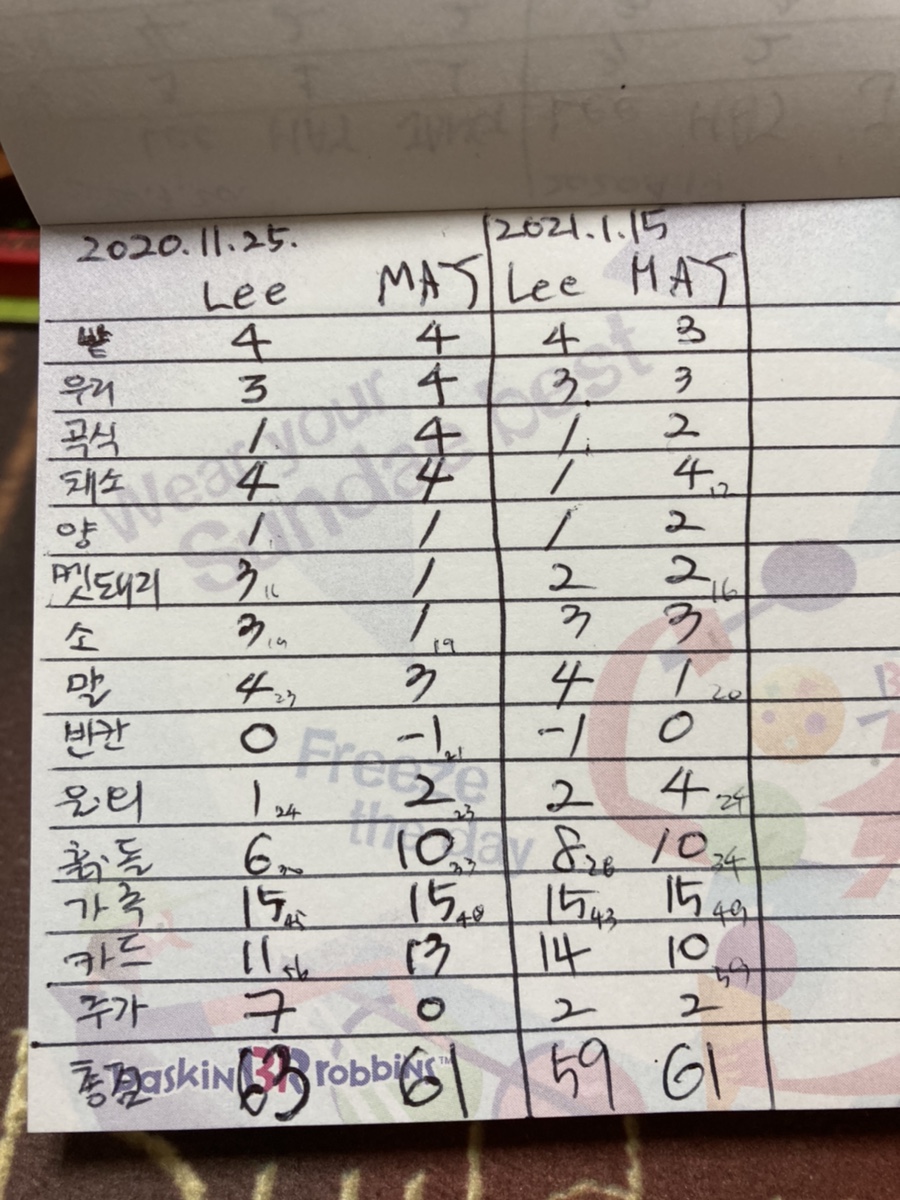 2020.11.25. 2021.1.15
Lee MAY Lee MAY
밭 4 4 4 3
우리 3 4 3 3
곡식 1 4 1 2
채소 4 4 1 4 12
양 1 1 1 2
멧돼지 3 16 1 2 2 16
소 3 19 1 19 3 3
말 4 23 3 4 1 20
빈칸 0 -1 21 -1 0
울타리 1 24 2 23 2 4 24
흙,돌 6 30 10 33 8 28 10 34
가족 15 45 15 48 15 43 15 49
카드 11 56 13 14 10 59
추가 7 0 2 2
총점 63 61 59 61
Wear your
Sundae best
Freeze
the day
BASKIN BR ROBBINS™